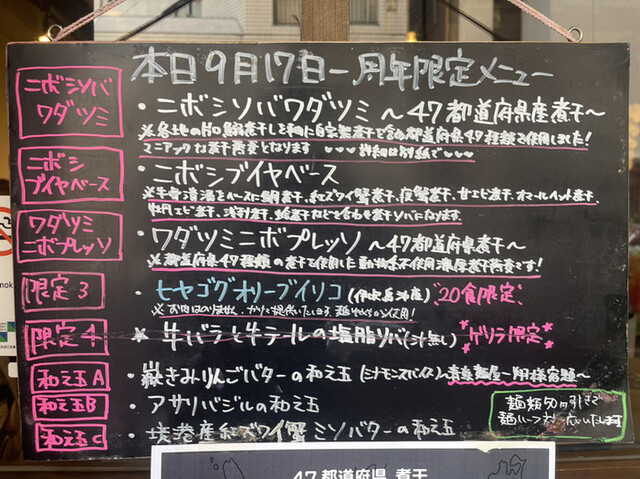 本日9月17日一周年限定メニュー
ニボシソバ
ワダツミ
・ニボシソバワダツミ〜47都道府県産煮干〜
都道府県47種類を使用しました!
マニアックな煮干蕎麦となります 詳細は別紙で
ニボシ
ブイヤベース
・ニボシブイヤベース
※牛骨清湯をベースに鯛煮干、紅ズワイ蟹煮干、甘エビ煮干、オマールヘッド煮干、
牡丹エビ煮干、浅利煮干、などを合わせた煮干ソバになります。
ワダツミ
ニボプレッソ
・ワダツミニボプレッソ〜47都道府県煮干〜
※都道府県47種類の煮干を使用した動物系不使用濃厚煮干蕎麦です!
限定3
・ヒヤゴグオリーブイリコ(伊吹島産)"20食限定"
限定4
牛バラと牛テールの塩脂ソバ(汁無し) ゲリラ限定
和え玉A
・嶽きみりんごバターの和え玉(シナモンスパイス)
和え玉B
・アサリバジルの和え玉
和え玉C
・境港産紅ズワイ蟹ミソバターの和え玉
麺類50円引きで
47都道府県 煮干